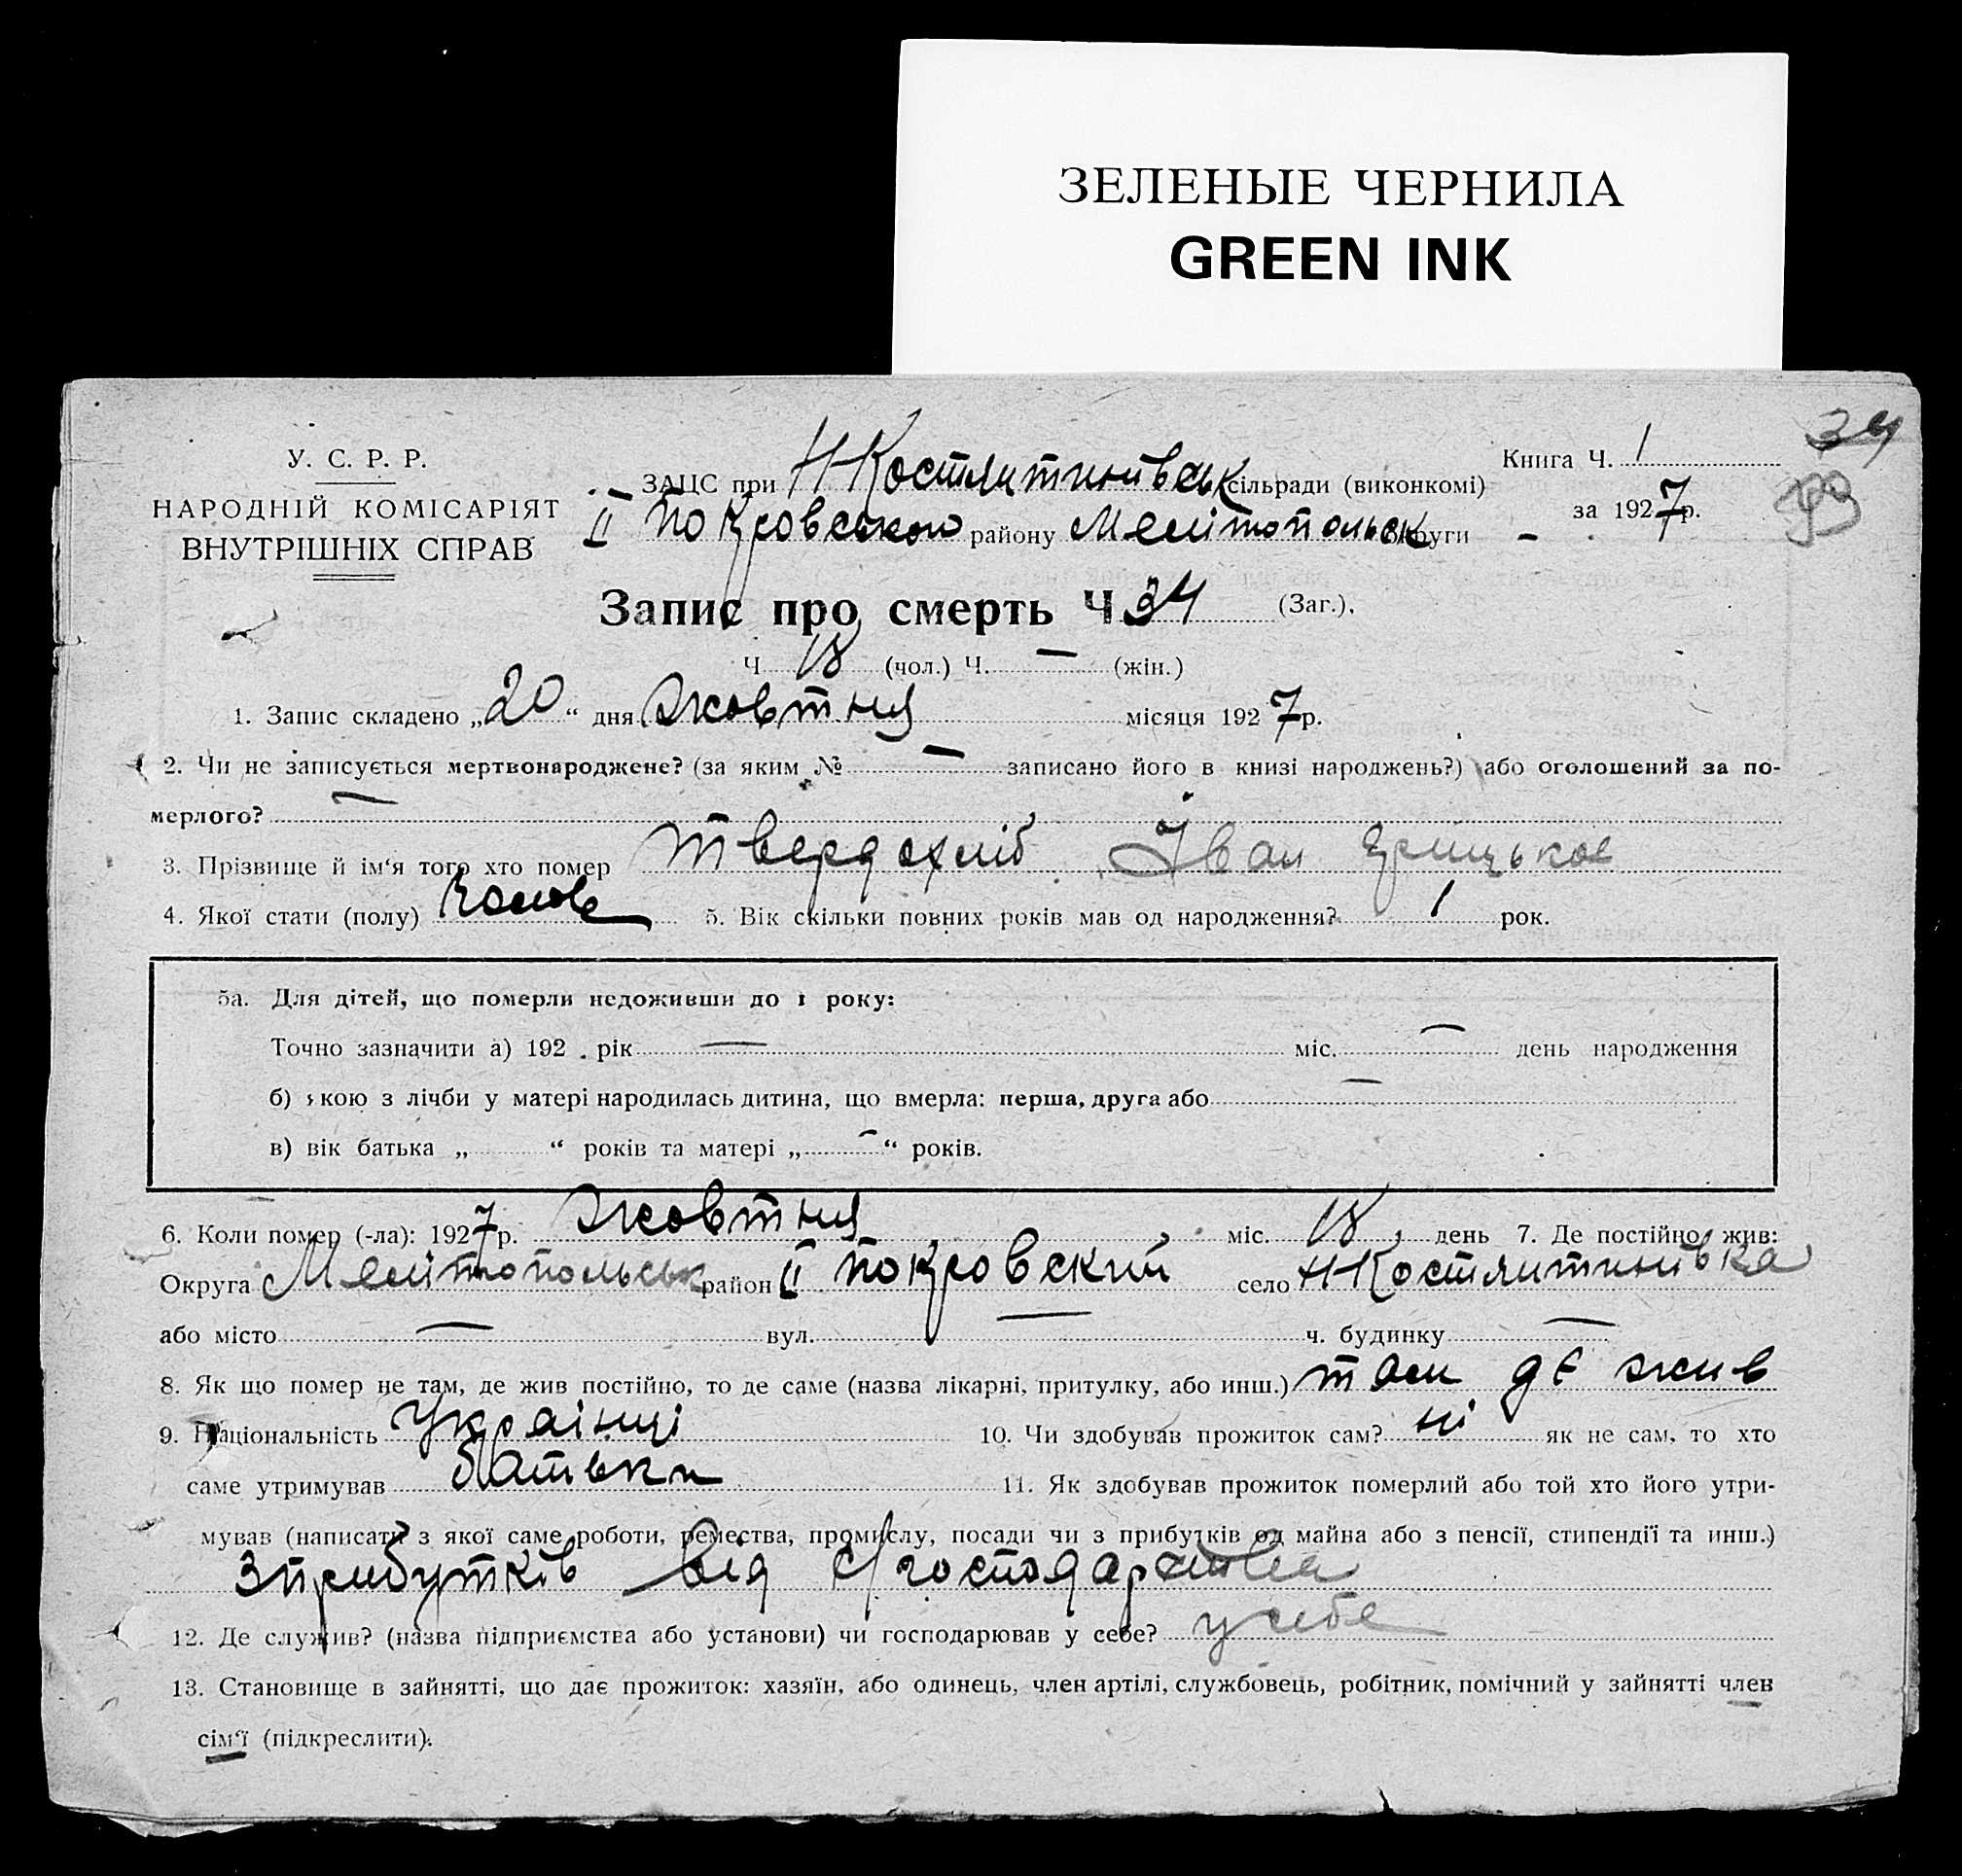 ЗЕЛЕНЫЕ ЧЕРНИЛА
GREEN INK
34
У. С. Р. Р.
НАРОДНІЙ КОМІСАРІЯТ
ВНУТРІШНІХ СПРАВ
ЗАЦС при Н Костянтинівськ сільради (виконкомі)
II Покровського району Мелітопольськ округи
Книга Ч. 1
за 1927 р.
Запис про смерть Ч 34 (Заг.).
Ч 18 (чол.) Ч. — (жін.)
1. Запис складено „20“ дня жовтня місяця 1927 р.
2. Чи не записується мертвонароджене? (за яким № — записано його в книзі народжень?) або оголошений за по-
мерлого? —
3. Прізвище й ім‘я того хто помер Твердохліб Іван Грицьков
4. Якої стати (полу) Чолов 5. Вік скільки повних років мав од народження? 1 рок.
5а. Для дітей, що померли недоживши до 1 року:
Точно зазначити а) 192 . рік — міс. — день народження
б) якою з лічби у матері народилась дитина, що вмерла: перша, друга або —
в) вік батька „ “ років та матері „ — “ років.
6. Коли помер (-ла): 1927 р. жовтня міс. 18 день 7. Де постійно жив:
Округа Мелітопольськ район II Покровский село Н Костянтинівка
або місто — вул. — ч. будинку —
8. Як що помер не там, де жив постійно, то де саме (назва лікарні, притулку, або инш.) там де жив
9. Національність Українці 10. Чи здобував прожиток сам? ні як не сам, то хто
саме утримував батьки 11. Як здобував прожиток померлий або той хто його утри-
мував (написати з якої саме роботи, ремества, промислу, посади чи з прибутків од майна або з пенсії, стипендії та инш.)
З прибутків від с/господарства
12. Де служив? (назва підприємства або установи) чи господарював у себе? у себе
13. Становище в зайнятті, що дає прожиток: хазяїн, або одинець, член артілі, службовець, робітник, помічний у зайнятті член
сім‘ї (підкреслити).